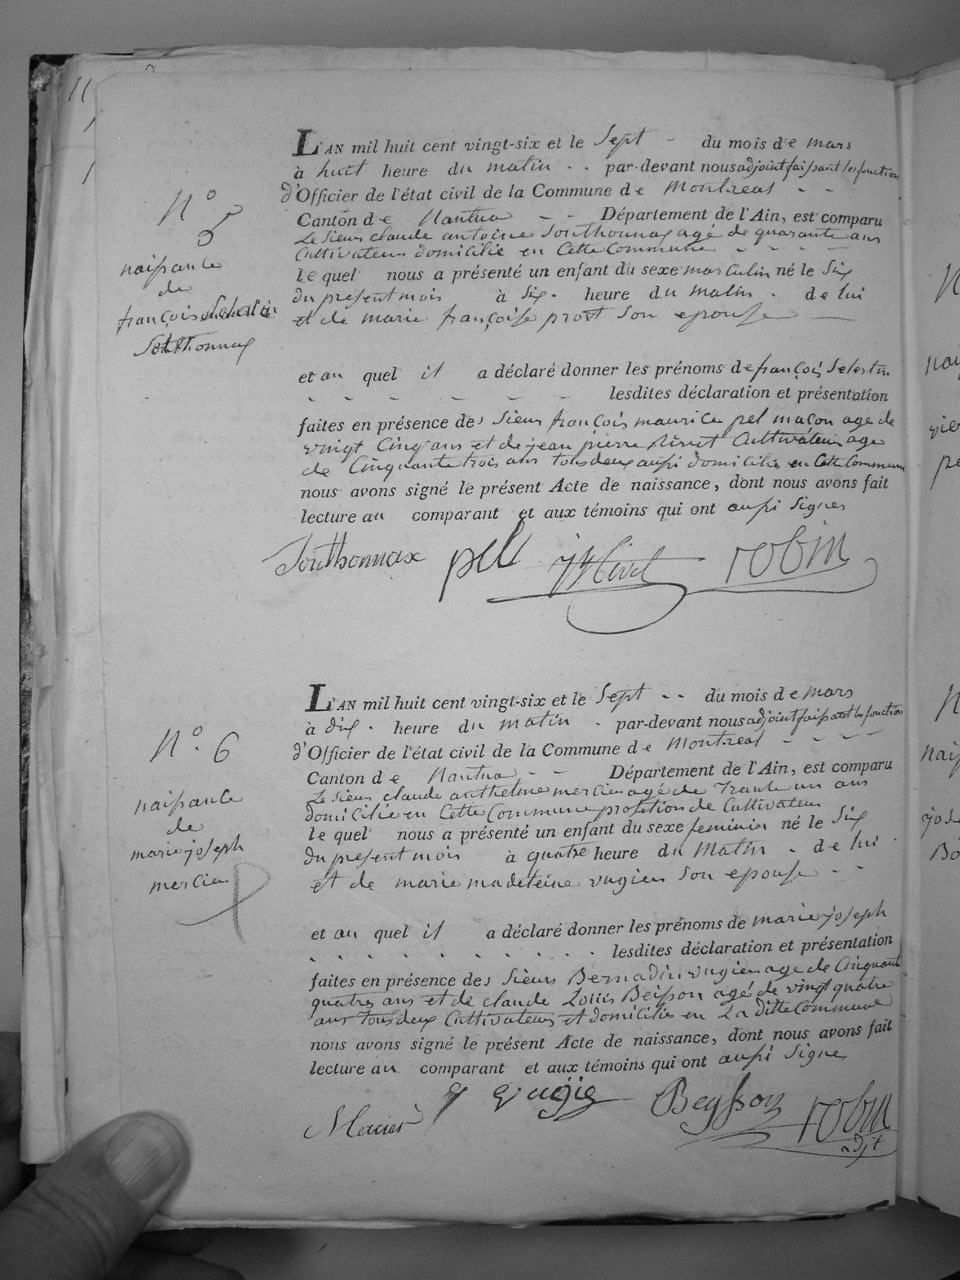 N° 5
naissance
de
françois Selestin
Southonnax
L'AN mil huit cent vingt-six et le Sept - du mois de mars
à huit heure du matin - - par-devant nous adjoint faissant les fonction
d'Officier de l'état civil de la Commune de Montreal - -
Canton de Nantua - - Département de l'Ain, est comparu
Le Sieur claude antoine Southonnax agé de quarante ans
Cultivateur domicilié en Cette Commune - - - -
le quel nous a présenté un enfant du sexe masculin né le Six
du present mois à six - heure du matin - de lui
et de marie françoise prost Son epouse -
et au quel il a déclaré donner les prénoms de françois Selestin
- - - - - - lesdites déclaration et présentation
faites en présence des Sieur françois maurice pel maçon age de
vingt Cinq ans et de jean pierre Nivet Cultivateur age
de Cinquante trois ans tous deux aussi domicilié en Cette Commune
nous avons signé le présent Acte de naissance, dont nous avons fait
lecture au comparant et aux témoins qui ont aussi Signer
Southonnax pel Nivet robin
N° 6
naissance
de
marie joseph
mercier
L'AN mil huit cent vingt-six et le Sept - - du mois de mars
à dix - heure du matin - par-devant nous adjoint faissant les fonction
d'Officier de l'état civil de la Commune de Montreal - - - -
Canton de Nantua - - Département de l'Ain, est comparu
Le Sieur claude anthelme mercier agé de Trante un ans
domicilié en Cette Commune profession de Cultivateur
le quel nous a présenté un enfant du sexe feminin né le Six
du present mois à quatre heure du Matin - de lui
et de marie madeleine vugier Son epouse - -
et au quel il a déclaré donner les prénoms de marie joseph
- - - - - - - - - - lesdites déclaration et présentation
faites en présence des Sieurs Bernadin vugier age de Cinquante
quatre ans et de claude Louis Beisson agé de vingt quatre
ans tous deux Cultivateurs et domicilié en La ditte Commune
nous avons signé le présent Acte de naissance, dont nous avons fait
lecture au comparant et aux témoins qui ont aussi Signe
Mercier Beysson robin
adjt